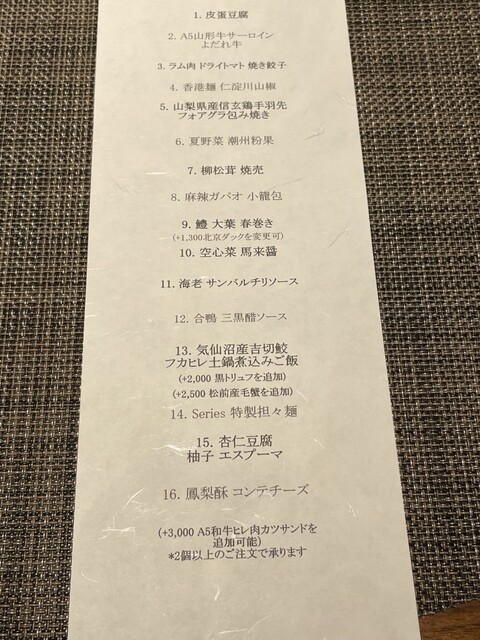 1. 皮蛋豆腐
2. A5山形牛サーロイン
よだれ牛
3. ラム肉 ドライトマト 焼き餃子
4. 香港麺 仁淀川山椒
5. 山梨県産信玄鶏手羽先
フォアグラ包み焼き
6. 夏野菜 潮州粉果
7. 柳松茸 焼売
8. 麻辣ガパオ 小籠包
9. 鱧 大葉 春巻き
(+1,300北京ダックを変更可)
10. 空心菜 馬来醤
11. 海老 サンバルチリソース
12. 合鴨 三黒醋ソース
13. 気仙沼産吉切鮫
フカヒレ土鍋煮込みご飯
(+2,000 黒トリュフを追加)
(+2,500 松前産毛蟹を追加)
14. Series 特製担々麺
15. 杏仁豆腐
柚子 エスプーマ
16. 鳳梨酥 コンテチーズ
(+3,000 A5和牛ヒレ肉カツサンドを
追加可能)
*2個以上のご注文で承ります